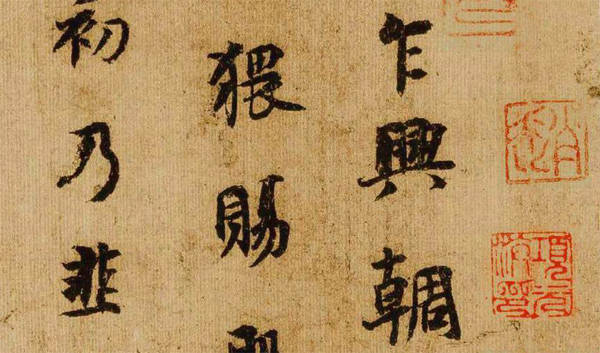 乍興輖
猥賜
初乃韭